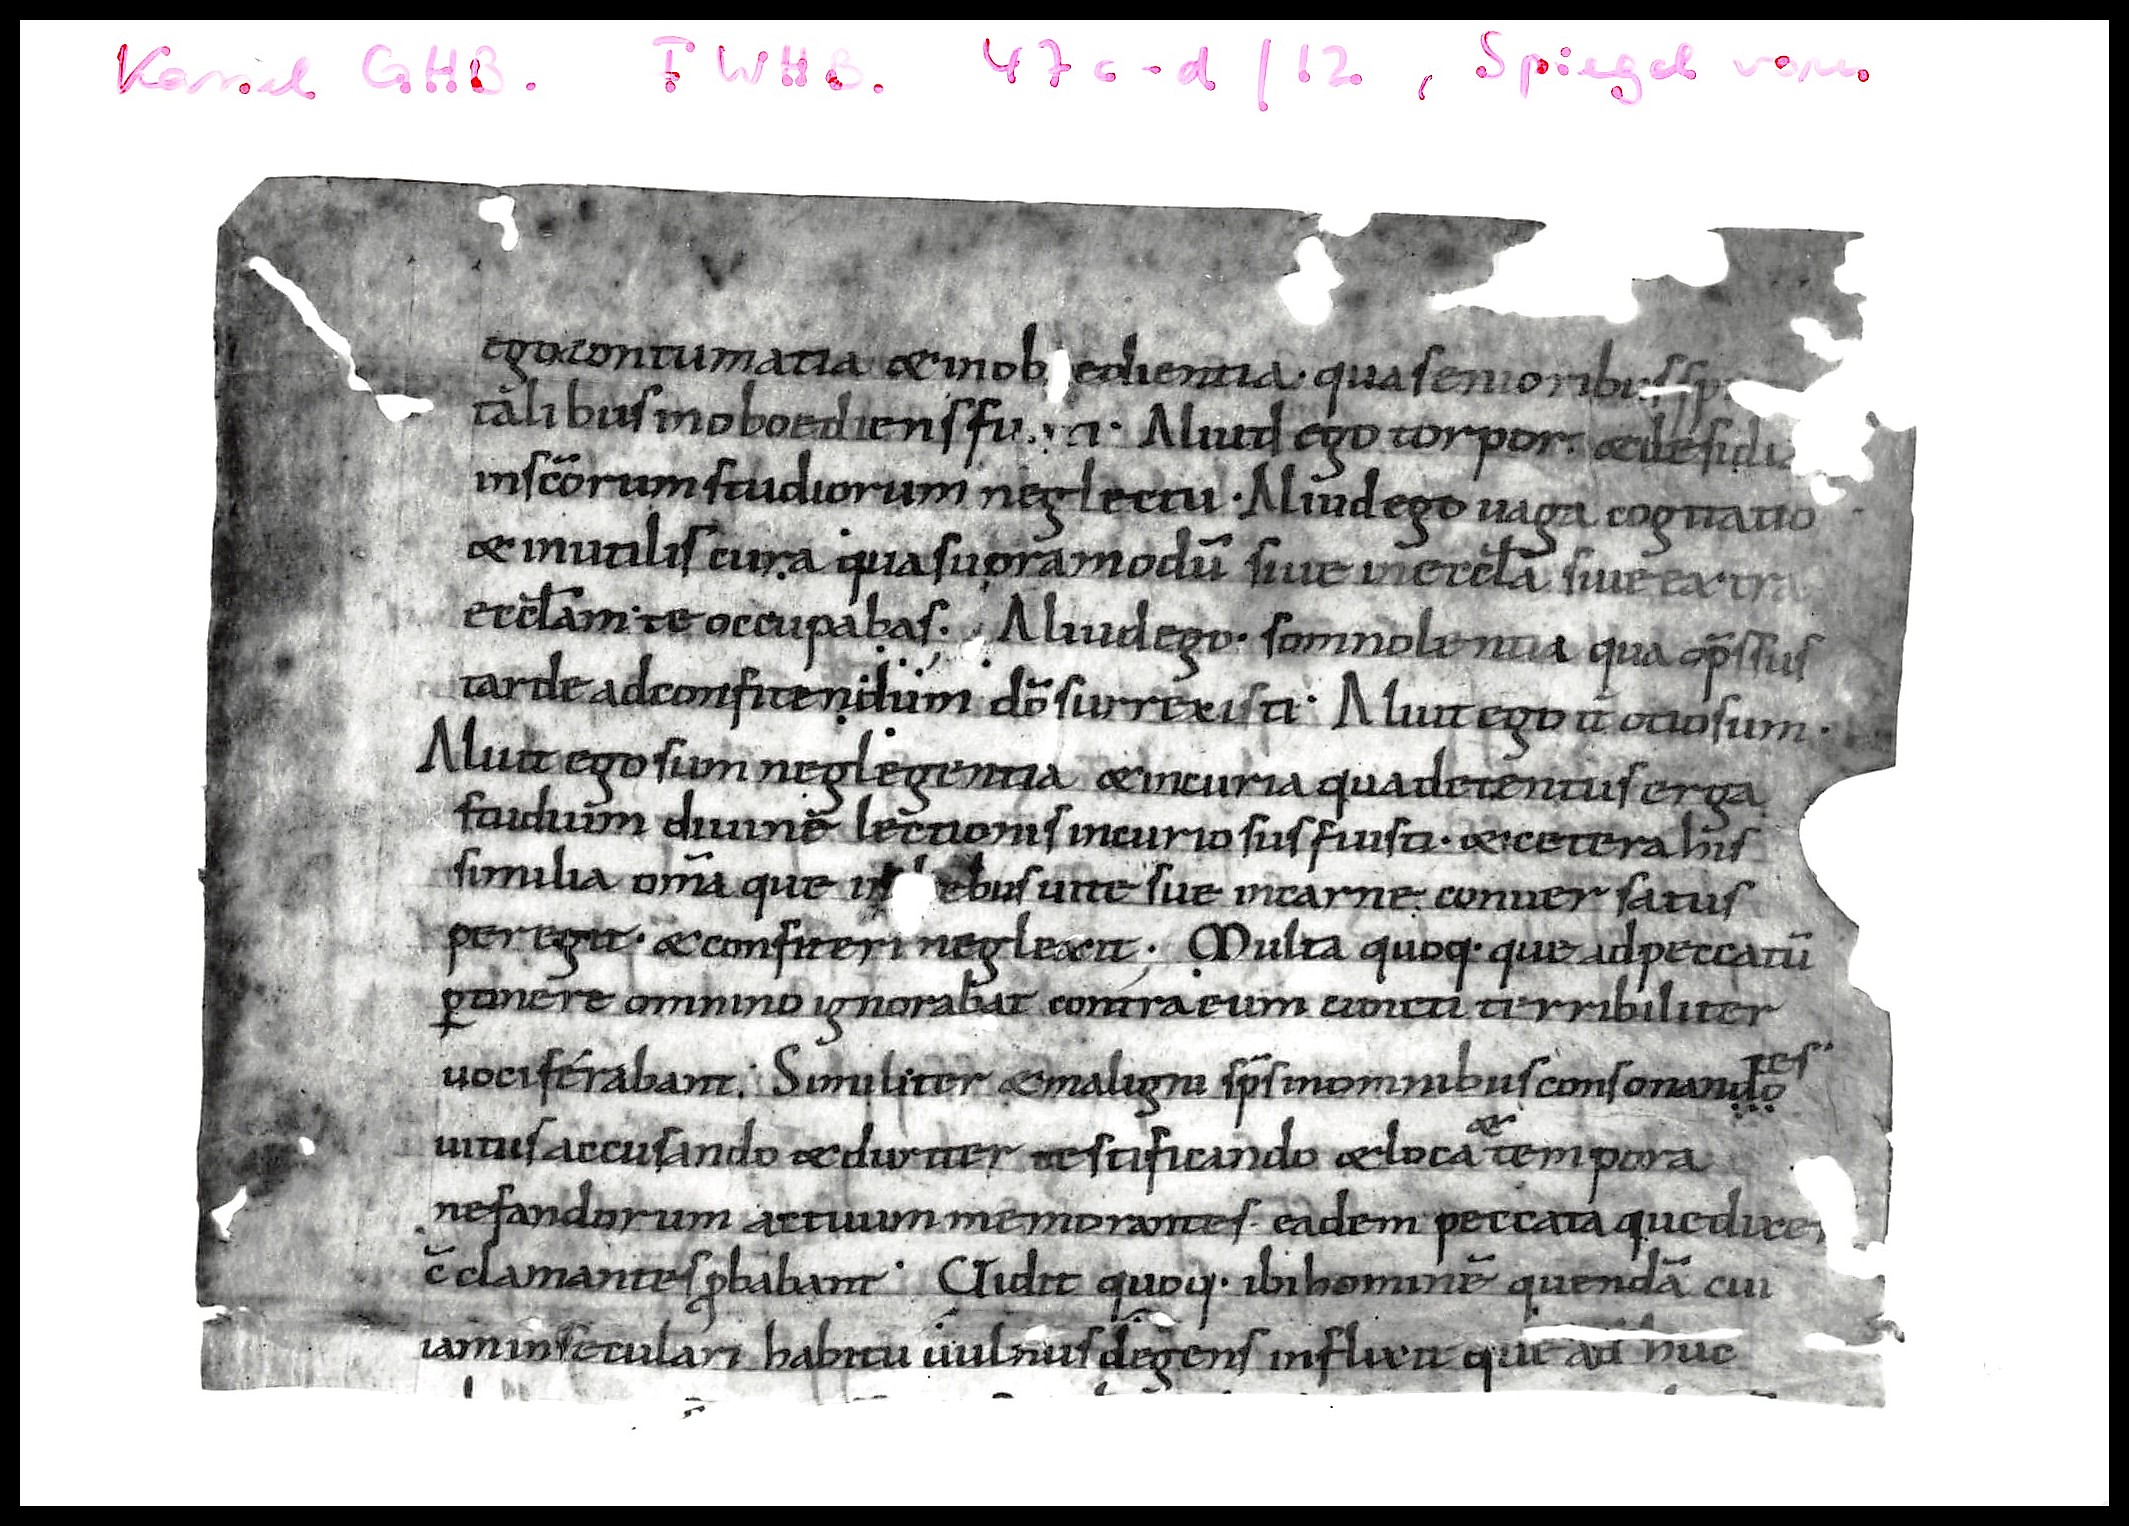 Kassel GHB. F WHB. 47 c-d / 12, Spiegel vorn
ego contumatia & inob edientia· qua senioribus sp
talibus inoboediens fu a· Aliud ego torpor· & desidi
in sc̄orum studiorum neglectu· Aliud ego uaga cogitatio
& inutilis cura qua supra modū siue in eccl̄a siue extra
eccl̄am te occupabas· Aliud ego· somnolentia qua op̄ssus
tarde ad confitendum dō surrexisti· Aliut ego it̄ otiosum·
Aliut ego sum neglegentia & incuria qua detentus erga
studium diuinę lectionis incuriosus fuisti· & cetera his
similia om̄a que in ebus uite sue in carne conuersatus
peregit· & confiteri neglexit· Multa quoq· que ad peccatū
ꝑtinere omnino ignorabat contra eum cuncti terribiliter
uociferabant· Similiter & maligni sp̄s in omnibus consonando
tes
uitus accusando & duriter testificando & loca & tempora
nefandorum actuum memorantes· eadem peccata que dixer
c̄clamantes ꝓbabant· Uidit quoq· ibi hominē quendā cui
iam in seculari habitu uulnus degens inflixit que ad huc